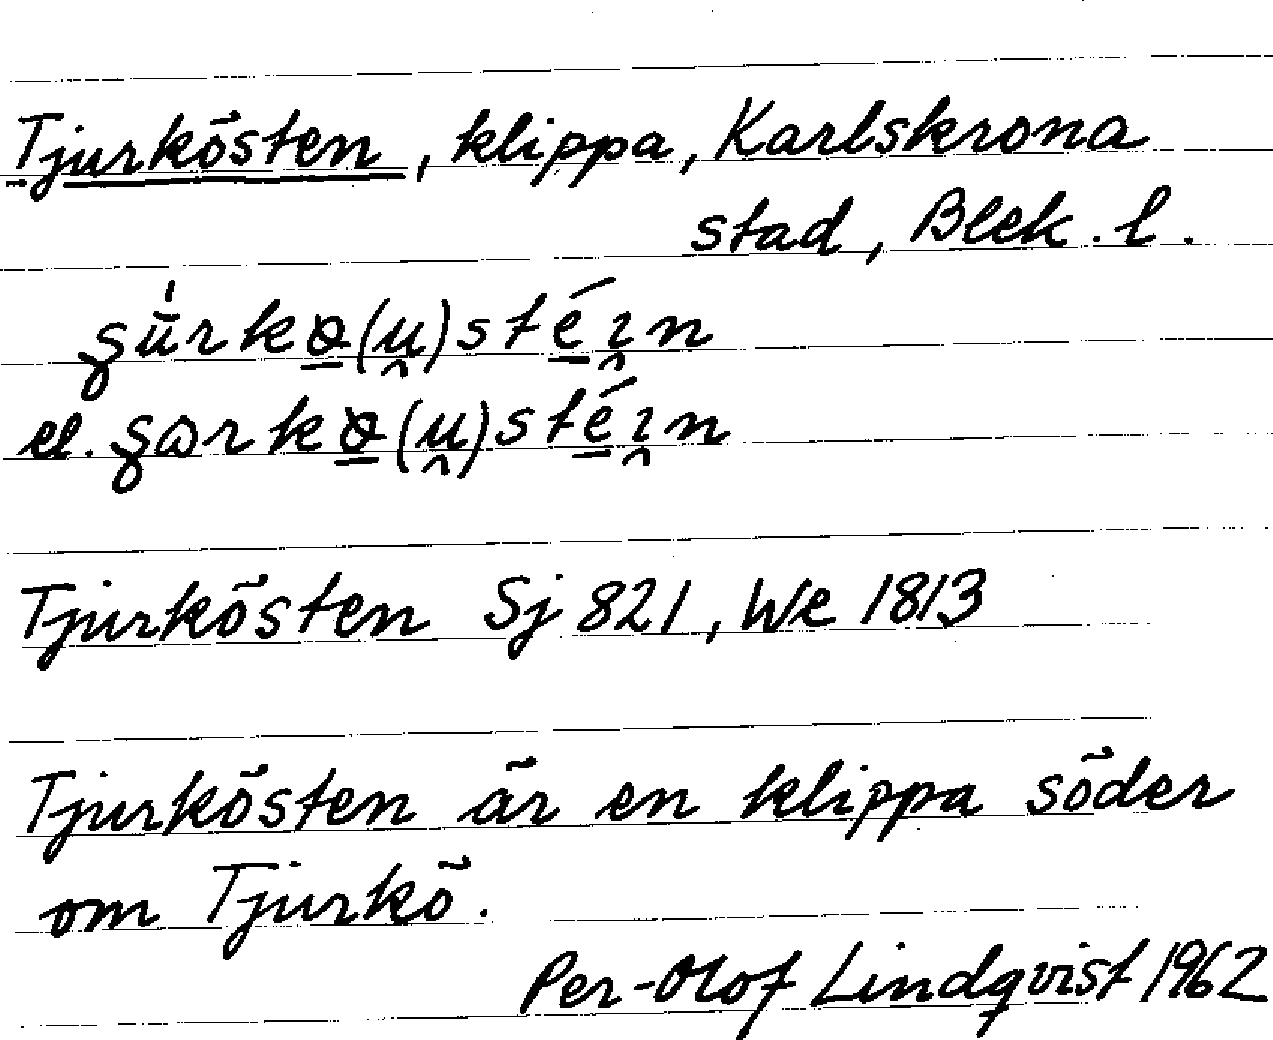 Tjurkösten, klippa, Karlskrona
stad, Blek. l.
el.
Tjurkösten Sj 821, We 1813
Tjurkösten är en klippa söder
om Tjurkö.
Per-Olof Lindqvist 1962